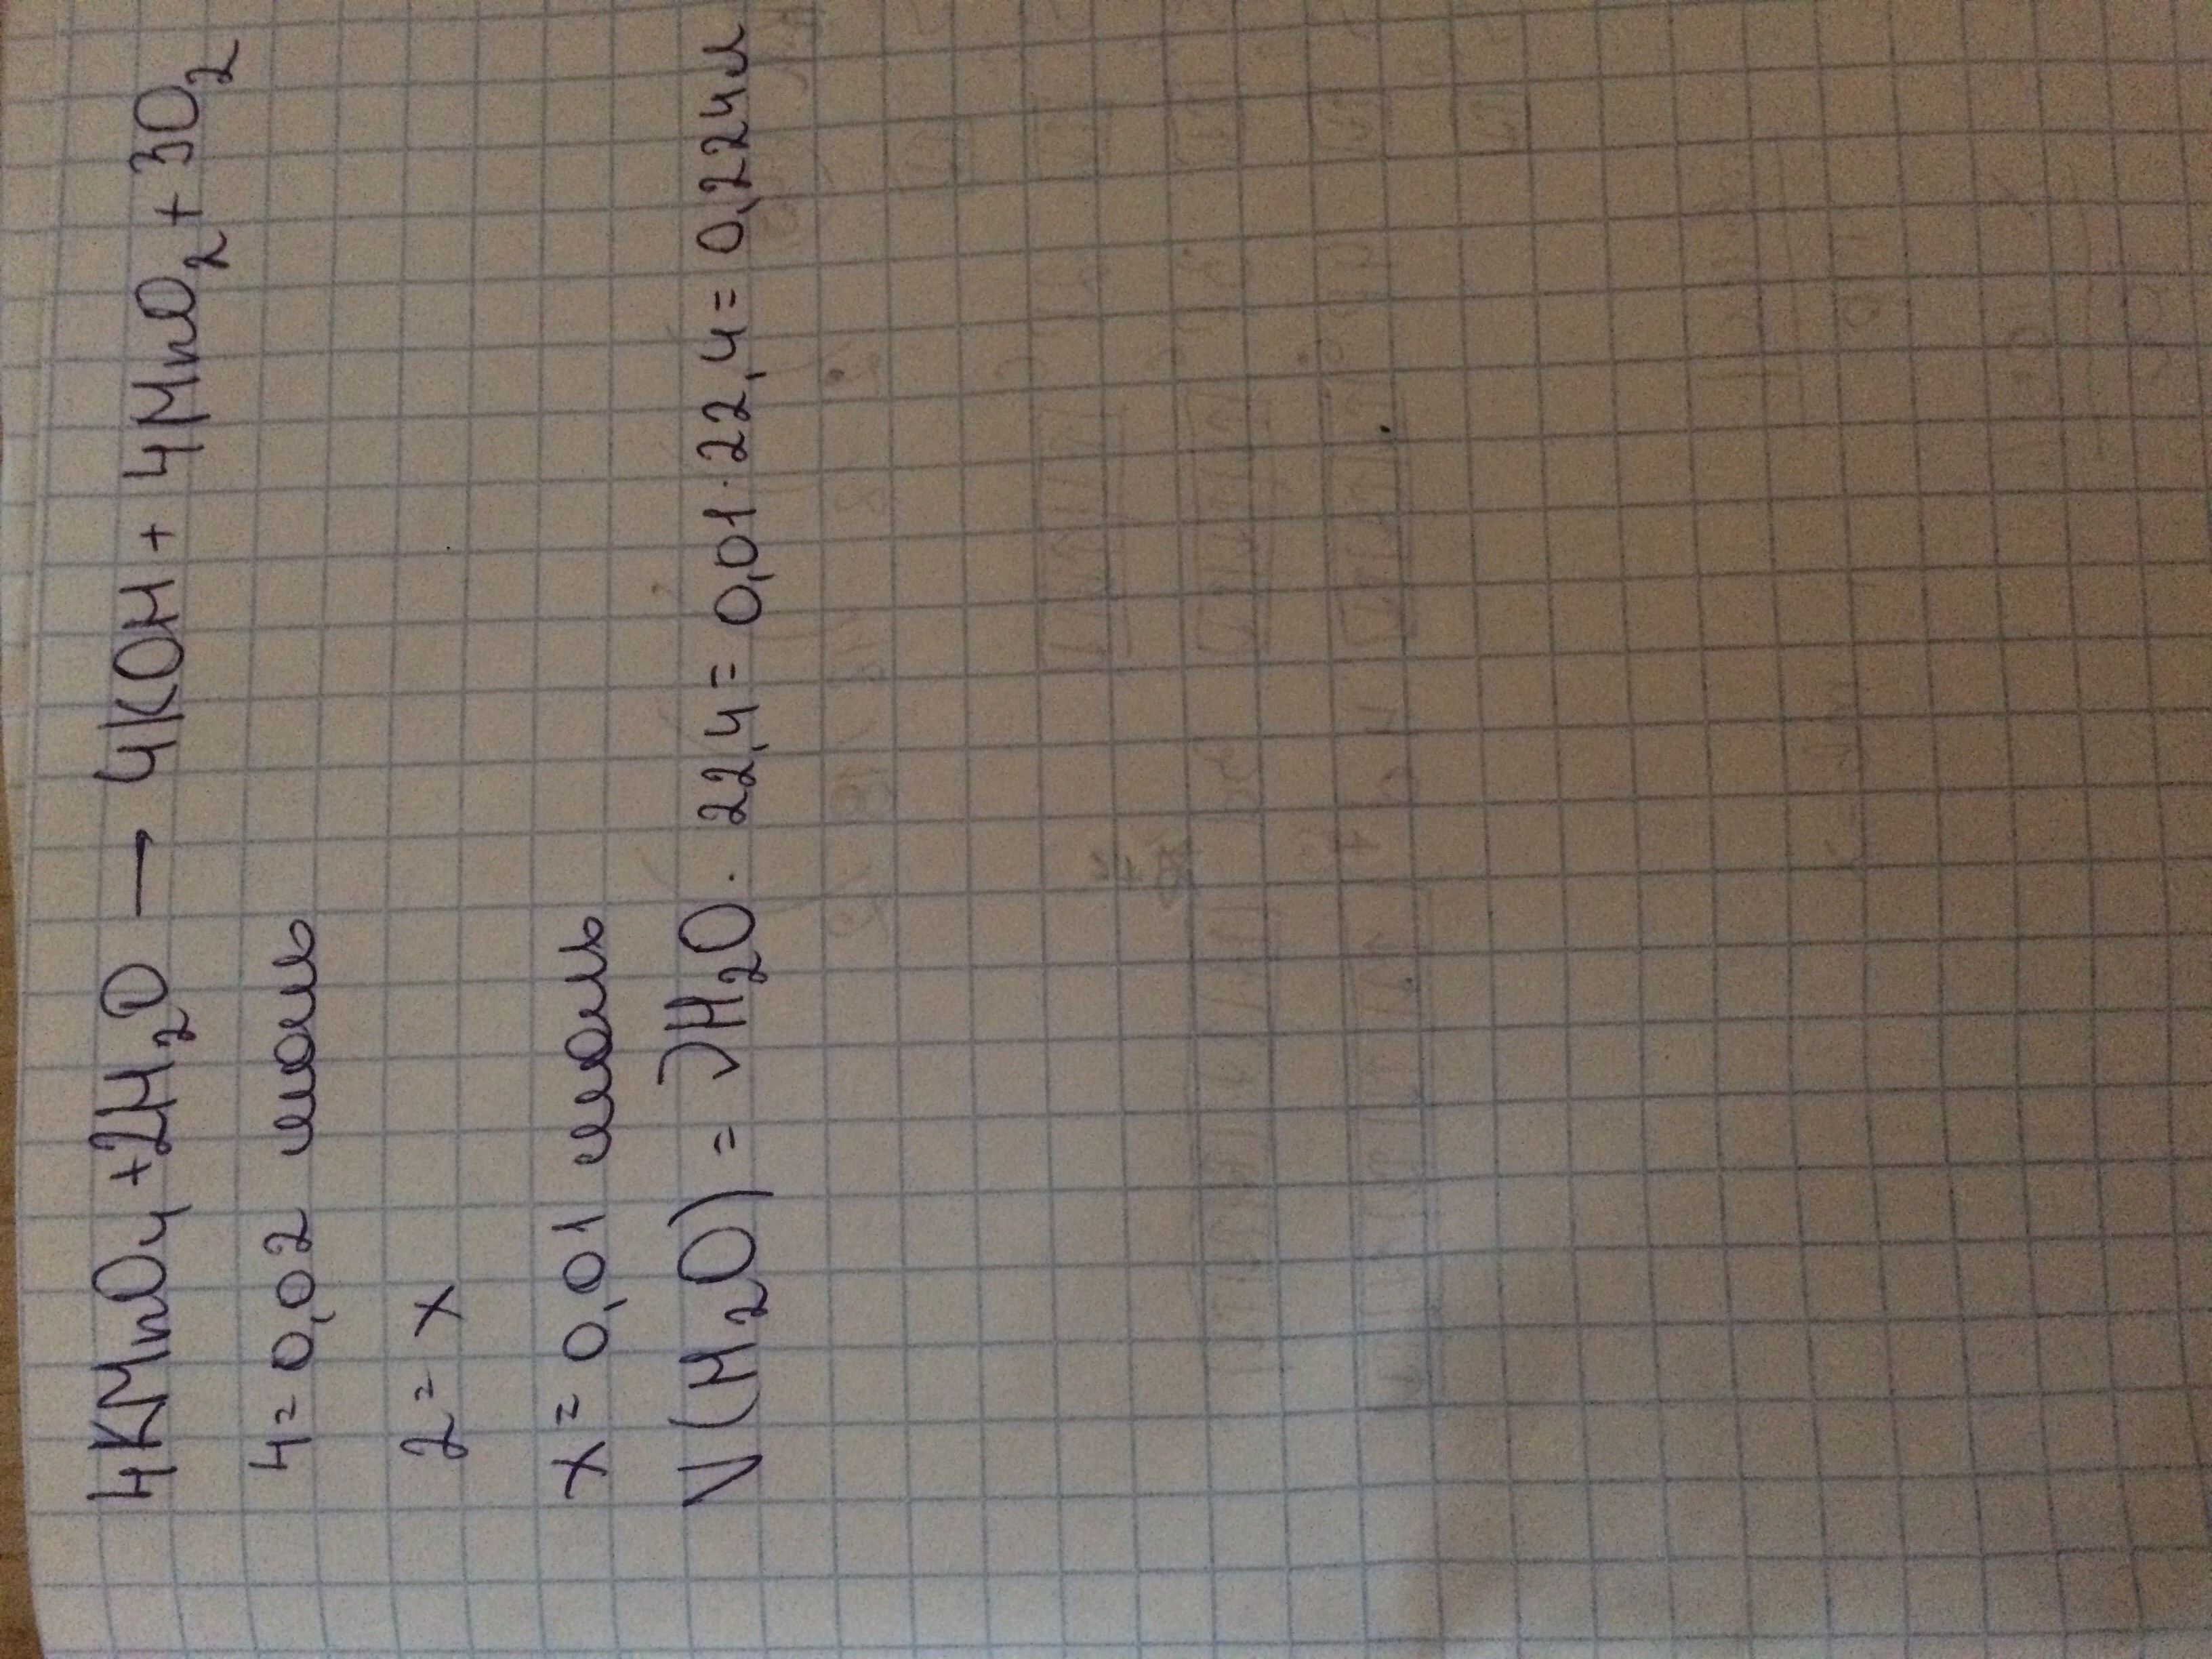 4KMnO₄ + 2H₂O → 4KOH + 4MnO₂ + 3O₂
4 = 0,02 моль
2 = x
x = 0,01 моль
V(H₂O) = νH₂O · 22,4 = 0,01 · 22,4 = 0,224л